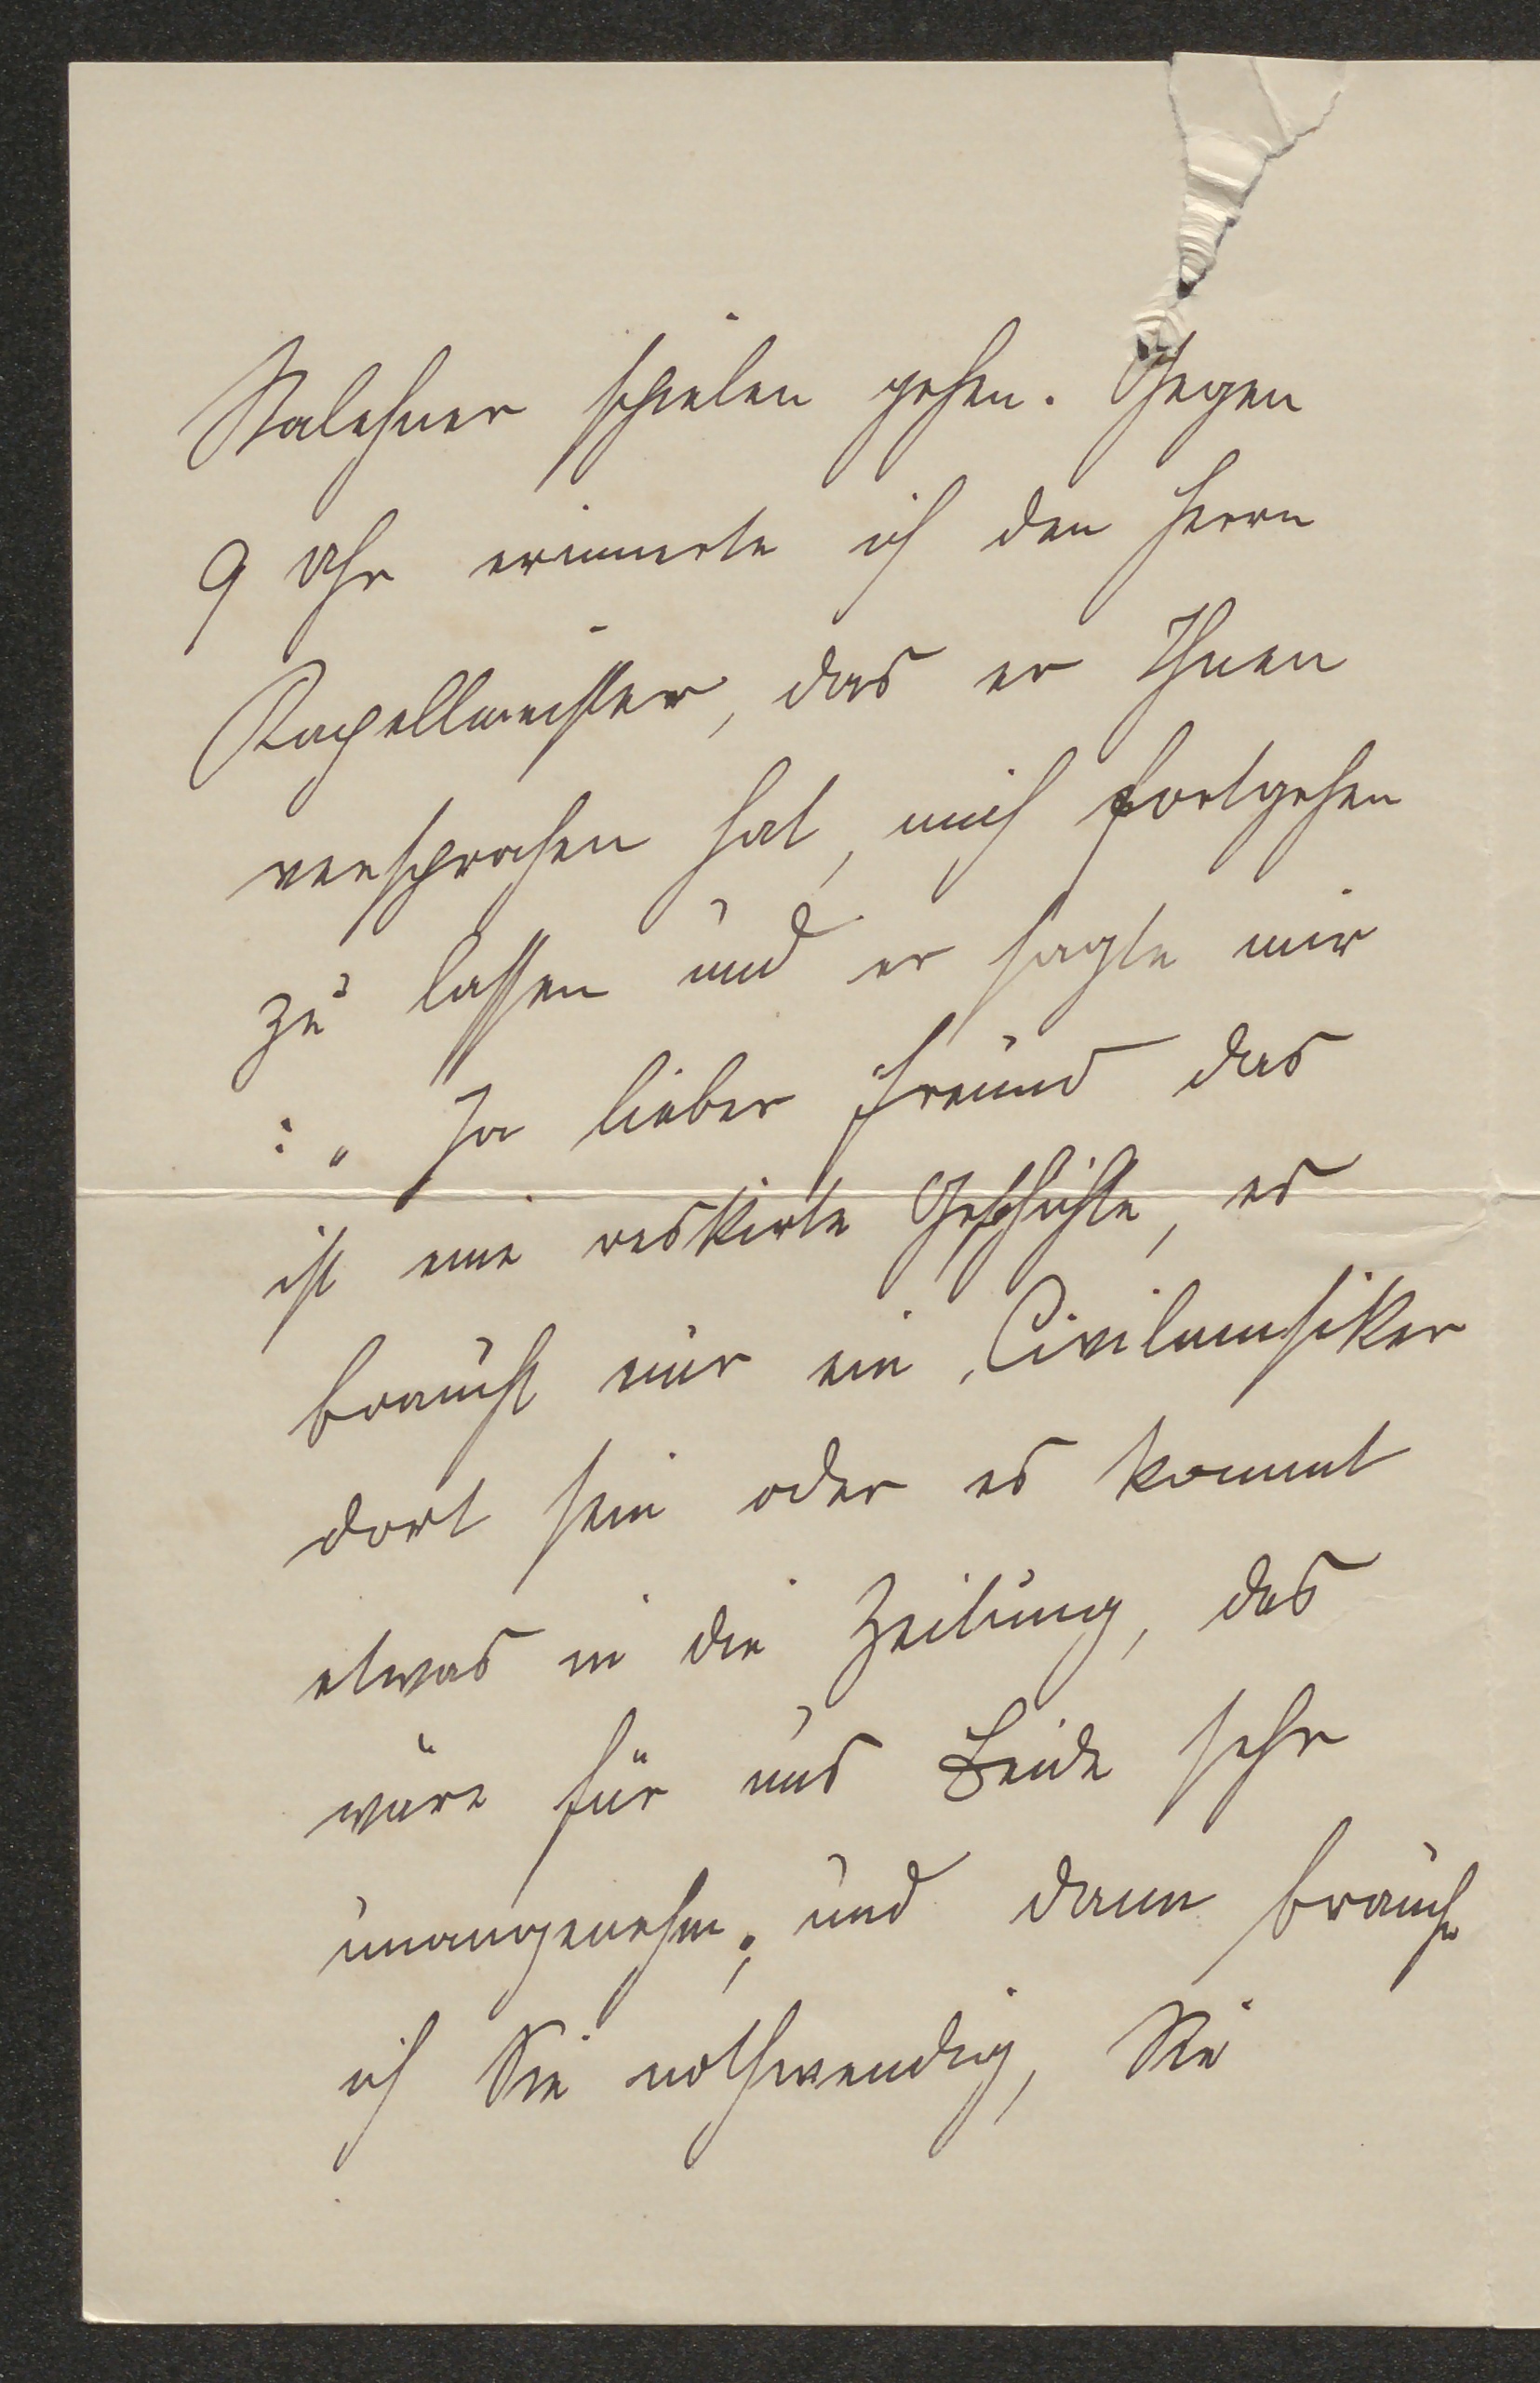 Stalehner spielen gehen. Gegen
9 Uhr erinnerte ich den Herrn
Kapellmeister, das er Ihnen
versprochen hat, mich fortgehen
zu lassen und er sagte mir
: „ Ja lieber Freund das
ist eine reskirte Geschichte, es
braucht nur ein Civilmusiker
dort sein oder es kommt
etwas in die Zeitung, das
wäre für uns Beide sehr
unangenehm; und dann brauche
ich Sie nothwendig, Sie